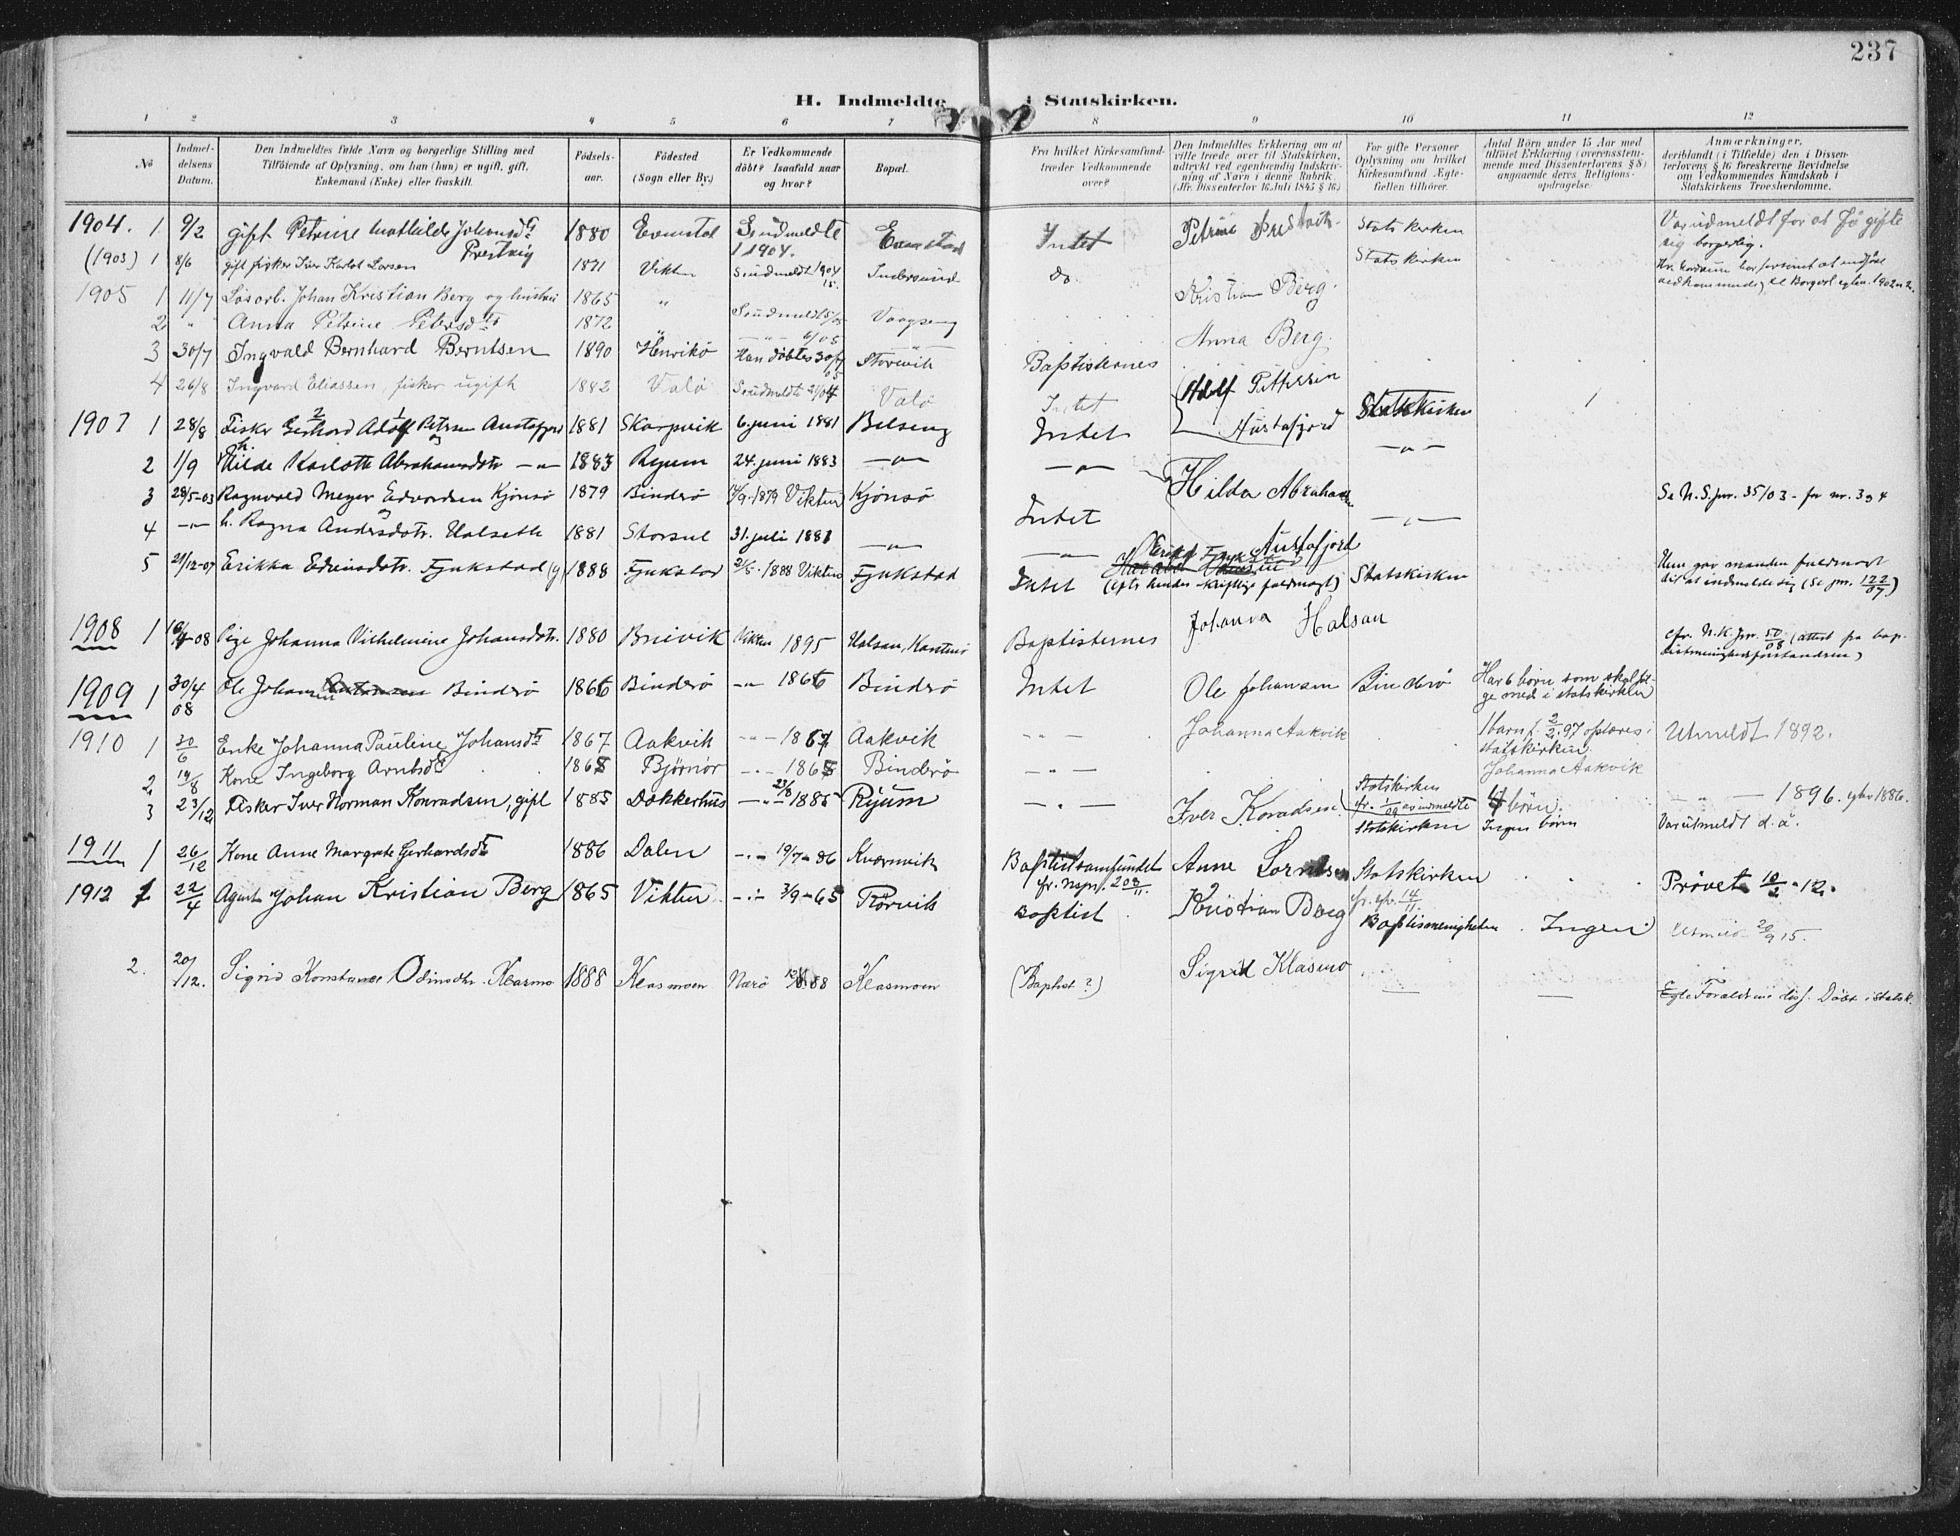 237
H. Indmeldte i Statskirken.
1 2 3 4 5 6 7 8 9 10 11 12
No
Indmeldelsens Datum.
Den Indmeldtes fulde Navn og borgerlige Stilling med
Tilföiende af Oplysning, om han (hun) er ugift, gift,
Enkemand (Enke) eller fraskilt.
Födselsaar.
Födested
(Sogn eller By.)
Er Vedkommende
döbt? Isaafald naar
og hvor?
Bopæl.
Fra hvilket Kirkesamfund
træder Vedkommende
over?
Den Indmeldtes Erklæring om at
ville træde over til Statskirken,
udtrykt ved egenhændig Indskrivning
af Navn i denne Rubrik.
(Jfr. Dissenterlov 16 Juli 1845 § 16.)
For gifte Personer
Oplysning om hvilket
Kirkesamfund Ægtefællen
tilhörer.
Antal Börn under 15 Aar med
tilföiet Erklæring (overensstemmende
med Dissenterlovens § 8)
angaaende deres Religionsopdragelse.
Anmærkninger,
deriblandt (i Tilfælde) den i Dissenterlovens
§ 16 foreskrevne Bevidnelse
om Vedkommendes Kundskab i
Statskirkens Troeslærdomme.
1904. 1 9/2 gift Petrine Mathilde Johansdtr 1880 Evenstad Gj. udmeldte 1 1904. Evenstad Intet Petrine Statskirken Var udmeldt for at få gifte sig borgerlig.
(1903) 1 8/6 gift fisker Iver Karlot Larsen 1871 Vikten Indersund Do. Statskirken
1905 1 11/7 Løsarb. Johan Kristian Berg og hustru 1865 " Kristian Berg.
2 " " Anna Petrine Petersdtr 1872 Vaagseng Anna Berg.
3 30/7 Ingvald Bernhard Berntsen 1890 Henrikø Han døbtes 30/7 05 Storevik Baptisternes
4 26/8 Ingvard Eliassen, fisker ugift 1882 Valø Valø Intet
1907 1 28/8 Fisker Gerhard Adolf Petersen Austafjord 1881 Skarpvik 6. juni 1881 Belseng Intet Adolf Pettersen Austafjord Statskirken 1
2 1/9 h. Hilde Karlotte Abrahamsdtr —"— 1883 Ryum 24. juni 1883 —"— —"— Hilda Abraham —"—
3 28/5-03 Ragnvald Meyer Edvardsen Kjönsö 1879 Bindrö 14/9.1879 Vikten Kjönsö Intet Se N.S. jnr. 35/03 - for nr. 3 og 4
4 —"— h. Ragna Andersdotr. Halseth 1881 Storsul 31. juli 1881 —"— —"— Austafjord —"—
5 21/12-07 Erikka Edvinsdotr. Fjukstad (g) 1888 Fjukstad 21/5. 1888 Vikten Fjukstad Intet (efter hendes skriftlige fuldmagt) Statskirken Hun gav manden fuldmagt til at indmelde sig (Se jnr. 122/07)
1908 1 -08 Pige Johanna Vilhelmine Johansdotr. 1880 Breivik Vikten 1895 Halsan, Baptisternes Johanna Halsan Cfr. N.K. Jnr. 50/08 (attest fra baptistmenighedsforstanderen)
1909 1 30/4 08 Ole Johansen Bindrö 1866 Bindrö —"— 1866 Bindrö Intet Ole Johansen Bindrö Har 6 börn som skal følge med i statskirken
1910 1 30/6 Enke Johanna Pauline Johansdtr 1867 Aakvik —"— 1867 Aakvik —"— Johanna Aakvik 1 barn f. 2/2.97 opføres i statskirken. Johanna Aakvik Utmeldt 1892.
2 19/8 Kone Ingeborg Arntsdtr 1868 Bjørnör —"— 1868 Bindrö —"— Statskirken
3 23/12 Fisker Iver Norman Konradsen, gift 1885 Dokkerhus —"— 23/8 1885 Ryum —"— Iver Konradsen. Statskirken 4 börn. Ingen börn —"— 1896. Var utmeldt d. å.
1911 1 26/12 Kone Anne Margrete Gerhardsdtr 1886 Dalen —"— 19/7-86 Kvernvik Baptistsamfundet Anne Statskirken Prøvet 10/2-12.
1912 1 22/4 Agent Johan Kristian Berg 1865 Vikten —"— 3/9-65 Rörvik Baptist Kristian Berg Baptistmenigheten Ingen
2. 20/12. Sigrid Konstanse Odinsdtr. Klasmo 1888 Klasmoen Nærö Klasmoen (Baptist?) Sigrid Klasmo — — Døbt i statsk.